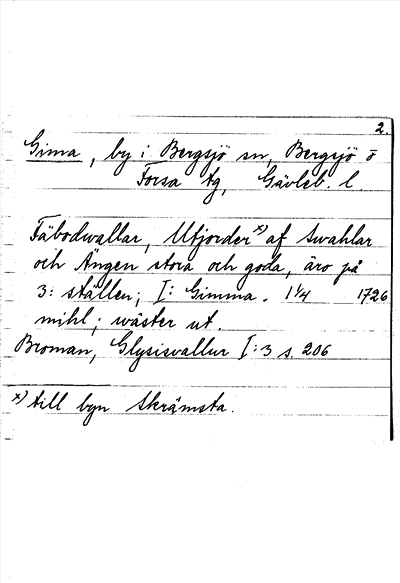 2.
Gima, by i Bergsjö sn, Bergsjö o
Forsa tg, Gävleb. l
Fäbodwallar, Utjorder x) af Swahlar
och Ängen stora och goda, äro på
3: ställen; I: Gimma. 1 1/4 1726
mihl; wäster ut.
Broman, Glysisvallur I:3 s. 206
x) till byn Skrämsta.